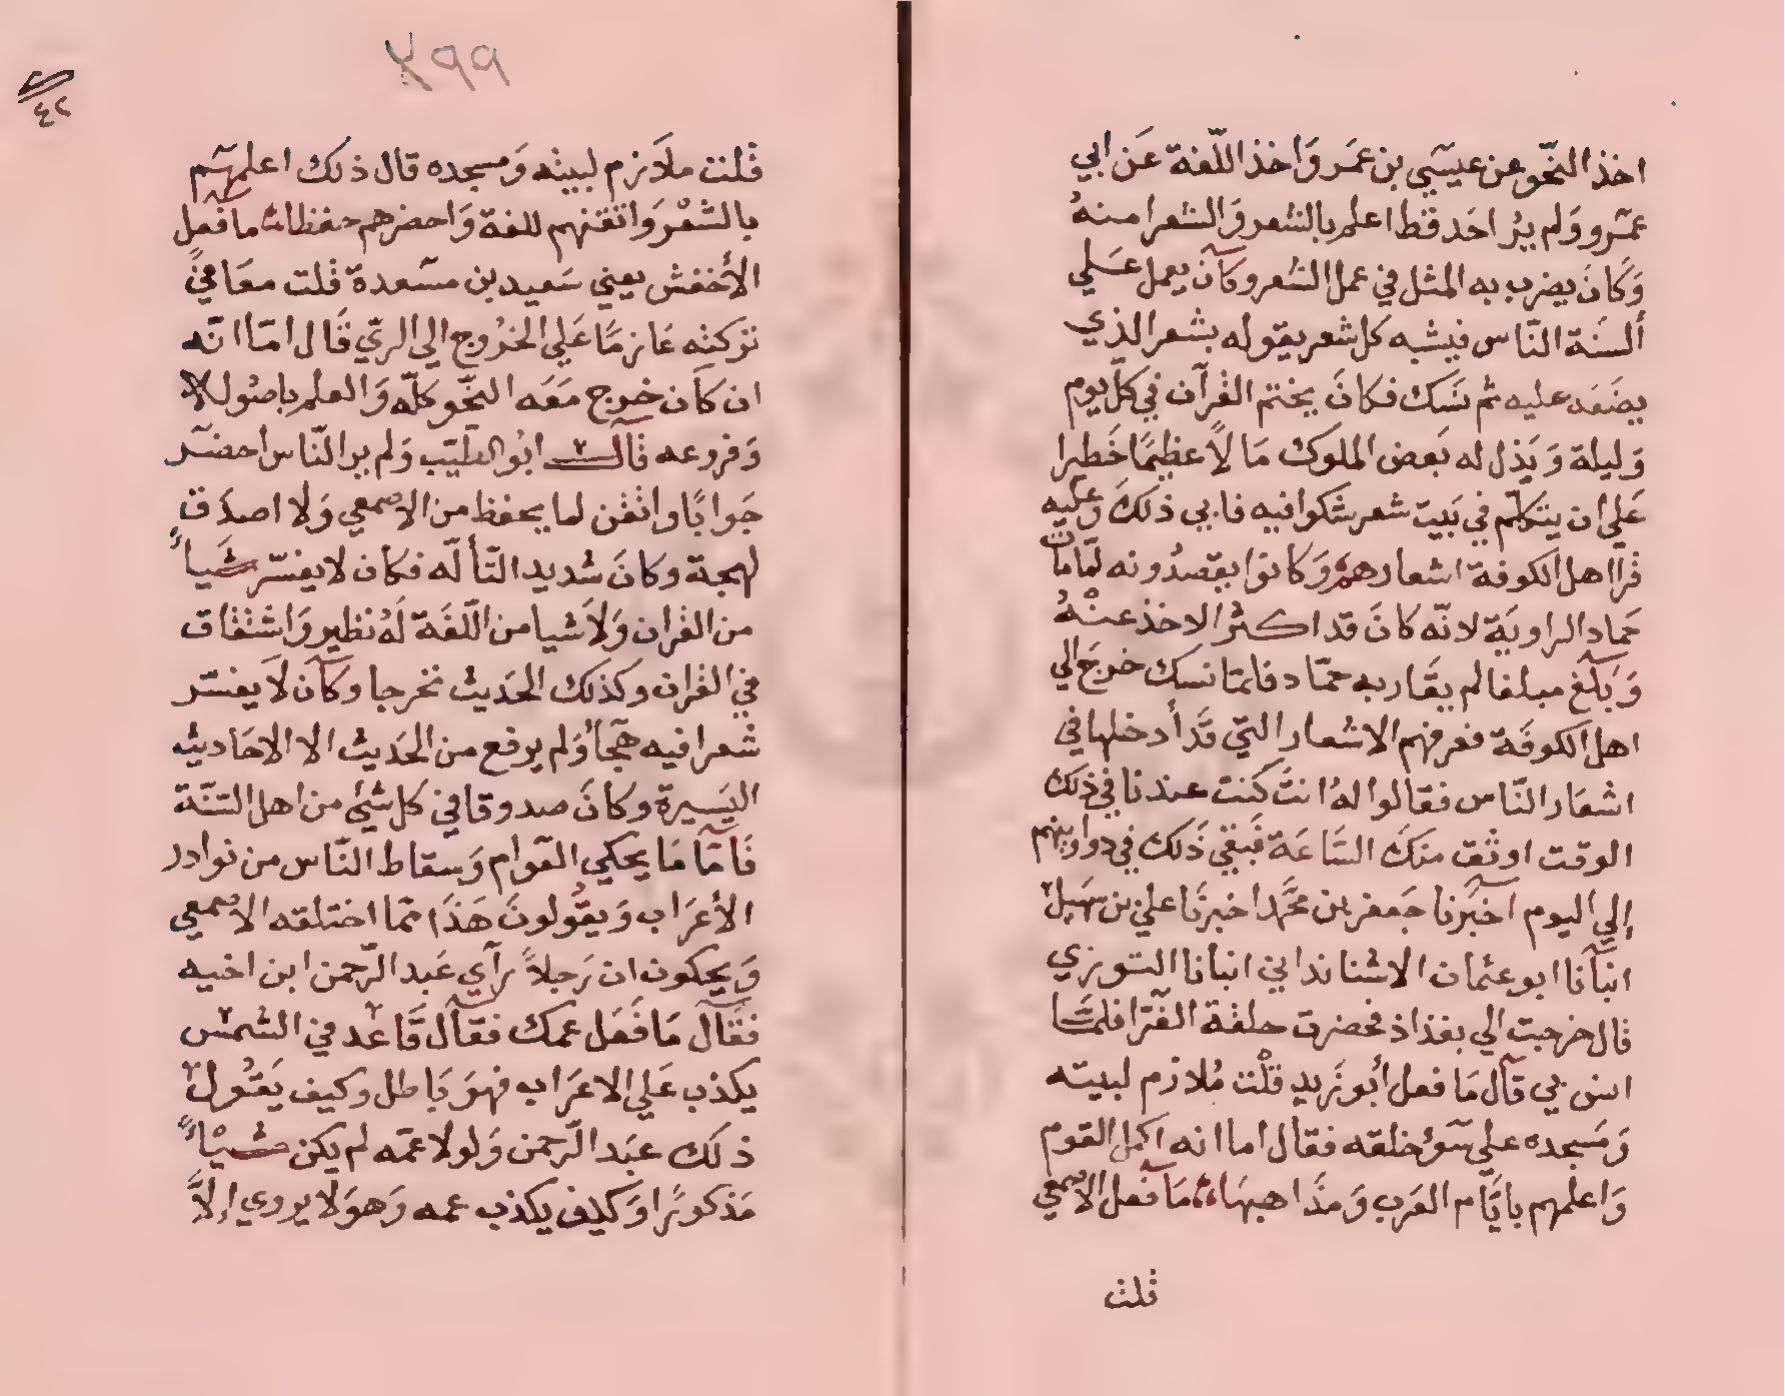 اخذ النّحو عن عيسَي بن عمَر وَاخذ اللّغة عَن ابي
عمَرو وَلم يرُ احَد قط اعلم بالشعر وَالشعرا منهُ
وَكَانَ يضرب به المثل في عمل الشعر وكآن يعمل عَلي
ألسنَة النّاس فيشبه كل شعر يقوله بشعر الذي
يضَعَه عليه ثم نسَك فكانَ يختم القرآن في كلّ يوم
وَليلة وَبَذل له بَعض الملوك مَا لاً عظيمًا خَطيرا
عَلي ان يتكلّم في بَيت شعر شكوا فيه فابي ذلكَ وَعليه
قرا اهل الكوفة اشعارهم وَكانوا يقصدُونه لمّا مات
حَماد الراويَة لانّه كانَ قد اكثر الاخذ عنْهُ
وَبَلغ مبلغا لم يقَاربه حمّاد فلمّا نسك خرجَ الي
اهل الكوفَة فعرفهم الاشعار التي قَد أدخلها في
اشعَار النّاس فقالوا لهُ انتَ كنت عندنا في ذلك
الوقت اوثق منكَ السَّاعَة فَبقي ذَلك في دواوينهم
إلي اليوم آخبَرنا جَعفر بن محَّمد اخبرنَا علي بن سَهل
انبآنا ابو عثمان الاشنانداني انبانا التوزي
قال خرجت الي بغداذ فحضرت حلقة الفّرا فلمَّا
انس بي قآل مَا فعل أبو زَيد قلْت مُلازم لبيته
وَمَسجده علي سَوء خلقه فقال اما انه اكمل القوم
وَاعلمهم بايَّام العَرب وَمذَاهبهَا مَا فعل الاصمعي
قلت
٢٩٩
٤٢
قلت ملاَزم لبيته وَمسجده قال ذلك اعلمهم
بالشعْر وَاتقنهم للغة وَاحضرهم حفظا ما فعل
الأخفش يعني سَعيد بن مسَعدة قلت معَافيً
تركته عَازمًا عَلي الخرُوج الي الريّ قَال امّا انّه
ان كَان خرج مَعَه النحّو كلّه وَالعلم باصُوله
وَفروعه قالَ ابُو الطيّب وَلم ير النّاس احضَر
جَوابًا واتقن لما يحفظ من الاصمعي وَلا اصدَق
لهجة وكانَ شديد التألّه فكان لا يفسّر شَياءً
من القران وَلاَ شيا من اللّغَة لَهُ نظير وَاشتقاق
في القران وكذلك الحَديث تحرجا وكآن لاَ يفسّر
شعرا فيه هجَاءُ وَلم يرفع من الحَديث الا الاحَاديث
اليَسيرة وكانَ صدوقا في كل شئ من اهل السّنّة
فَامَّا مَا يحكي العَوام وَسقاط النّاس من نوادر
الأعرَاب وَيقُولونَ هَذَا ممّا اختلقه الاصمعي
وَيحكون ان رَجلاً رآي عَبد الرّحمن ابن اخيه
فقَالَ مَا فَعَل عمك فقآل قَاعد في الشمس
يكذب عَلي الاعرَاب فهوَ بَاطل وكيف يَقُول
ذلك عبَد الرّحمن وَلولا عمّه لم يكن شيْاءً
مَذكورًا وَكيف يكذب عمه وَهوَ لا يروي إلاَّ